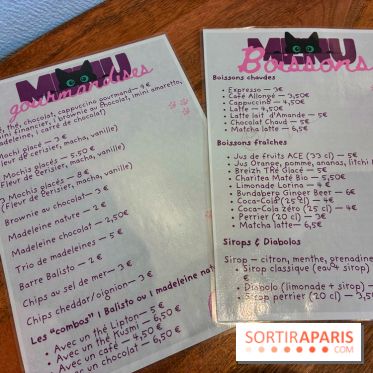 MENU
gourmandises
thé, chocolat, cappuccino gourmand — 4€
mini financier, 1 brownie au chocolat, 1 mini amaretto,
madeleine, 1 carré de chocolat)
Mochi glacé — 3 €
(Fleur de cerisier, macha, vanille)
Mochis glacés — 5.50 €
(Fleur de Cerisier, macha, vanille)
3 Mochis glacés — 8€
(Fleur de Cerisier, macha, vanille)
Brownie au chocolat — 3 €
Madeleine nature — 2 €
Madeleine chocolat — 2,50€
Trio de madeleines — 5 €
Barre Balisto — 2 €
Chips au sel de mer — 3 €
Chips cheddar/oignon — 3 €
Les "combos" 1 Balisto ou 1 madeleine nat
Avec un thé Lipton — 5 €
Avec un thé Kusmi — 6,50 €
Avec un café — 4,50 €
Avec un chocolat — 6,50€
MENU
Boissons
Boissons chaudes
• Expresso — 3€
• Café Allongé — 3,50€
• Cappuccino — 4,50€
• Latte — 4,50€
• Latte lait d'Amande — 5€
• Chocolat Chaud — 5€
• Matcha latte — 6,5€
Boissons fraîches
• Jus de fruits ACE (33 cl) — 5€
• Jus Orange, pomme, ananas, litchi
• Breizh Thé Glacé — 5€
• Charitea Maté Bio — 5,50€
• Limonade Lorina — 4€
• Bundaberg Ginger Beer — 6€
• Coca-Cola (25 cl) — 4€
• Coca-Cola zéro (25 cl) — 4€
• Perrier (20 cl) — 3€
• Matcha latte — 6,5€
Sirops & Diabolos
Sirop — citron, menthe, grenadine
• Sirop classique (eau + sirop)
€
• Diabolo (limonade + sirop) —
• Sirop perrier (20 cl) — 3,50
SORTIRAPARIS
.COM